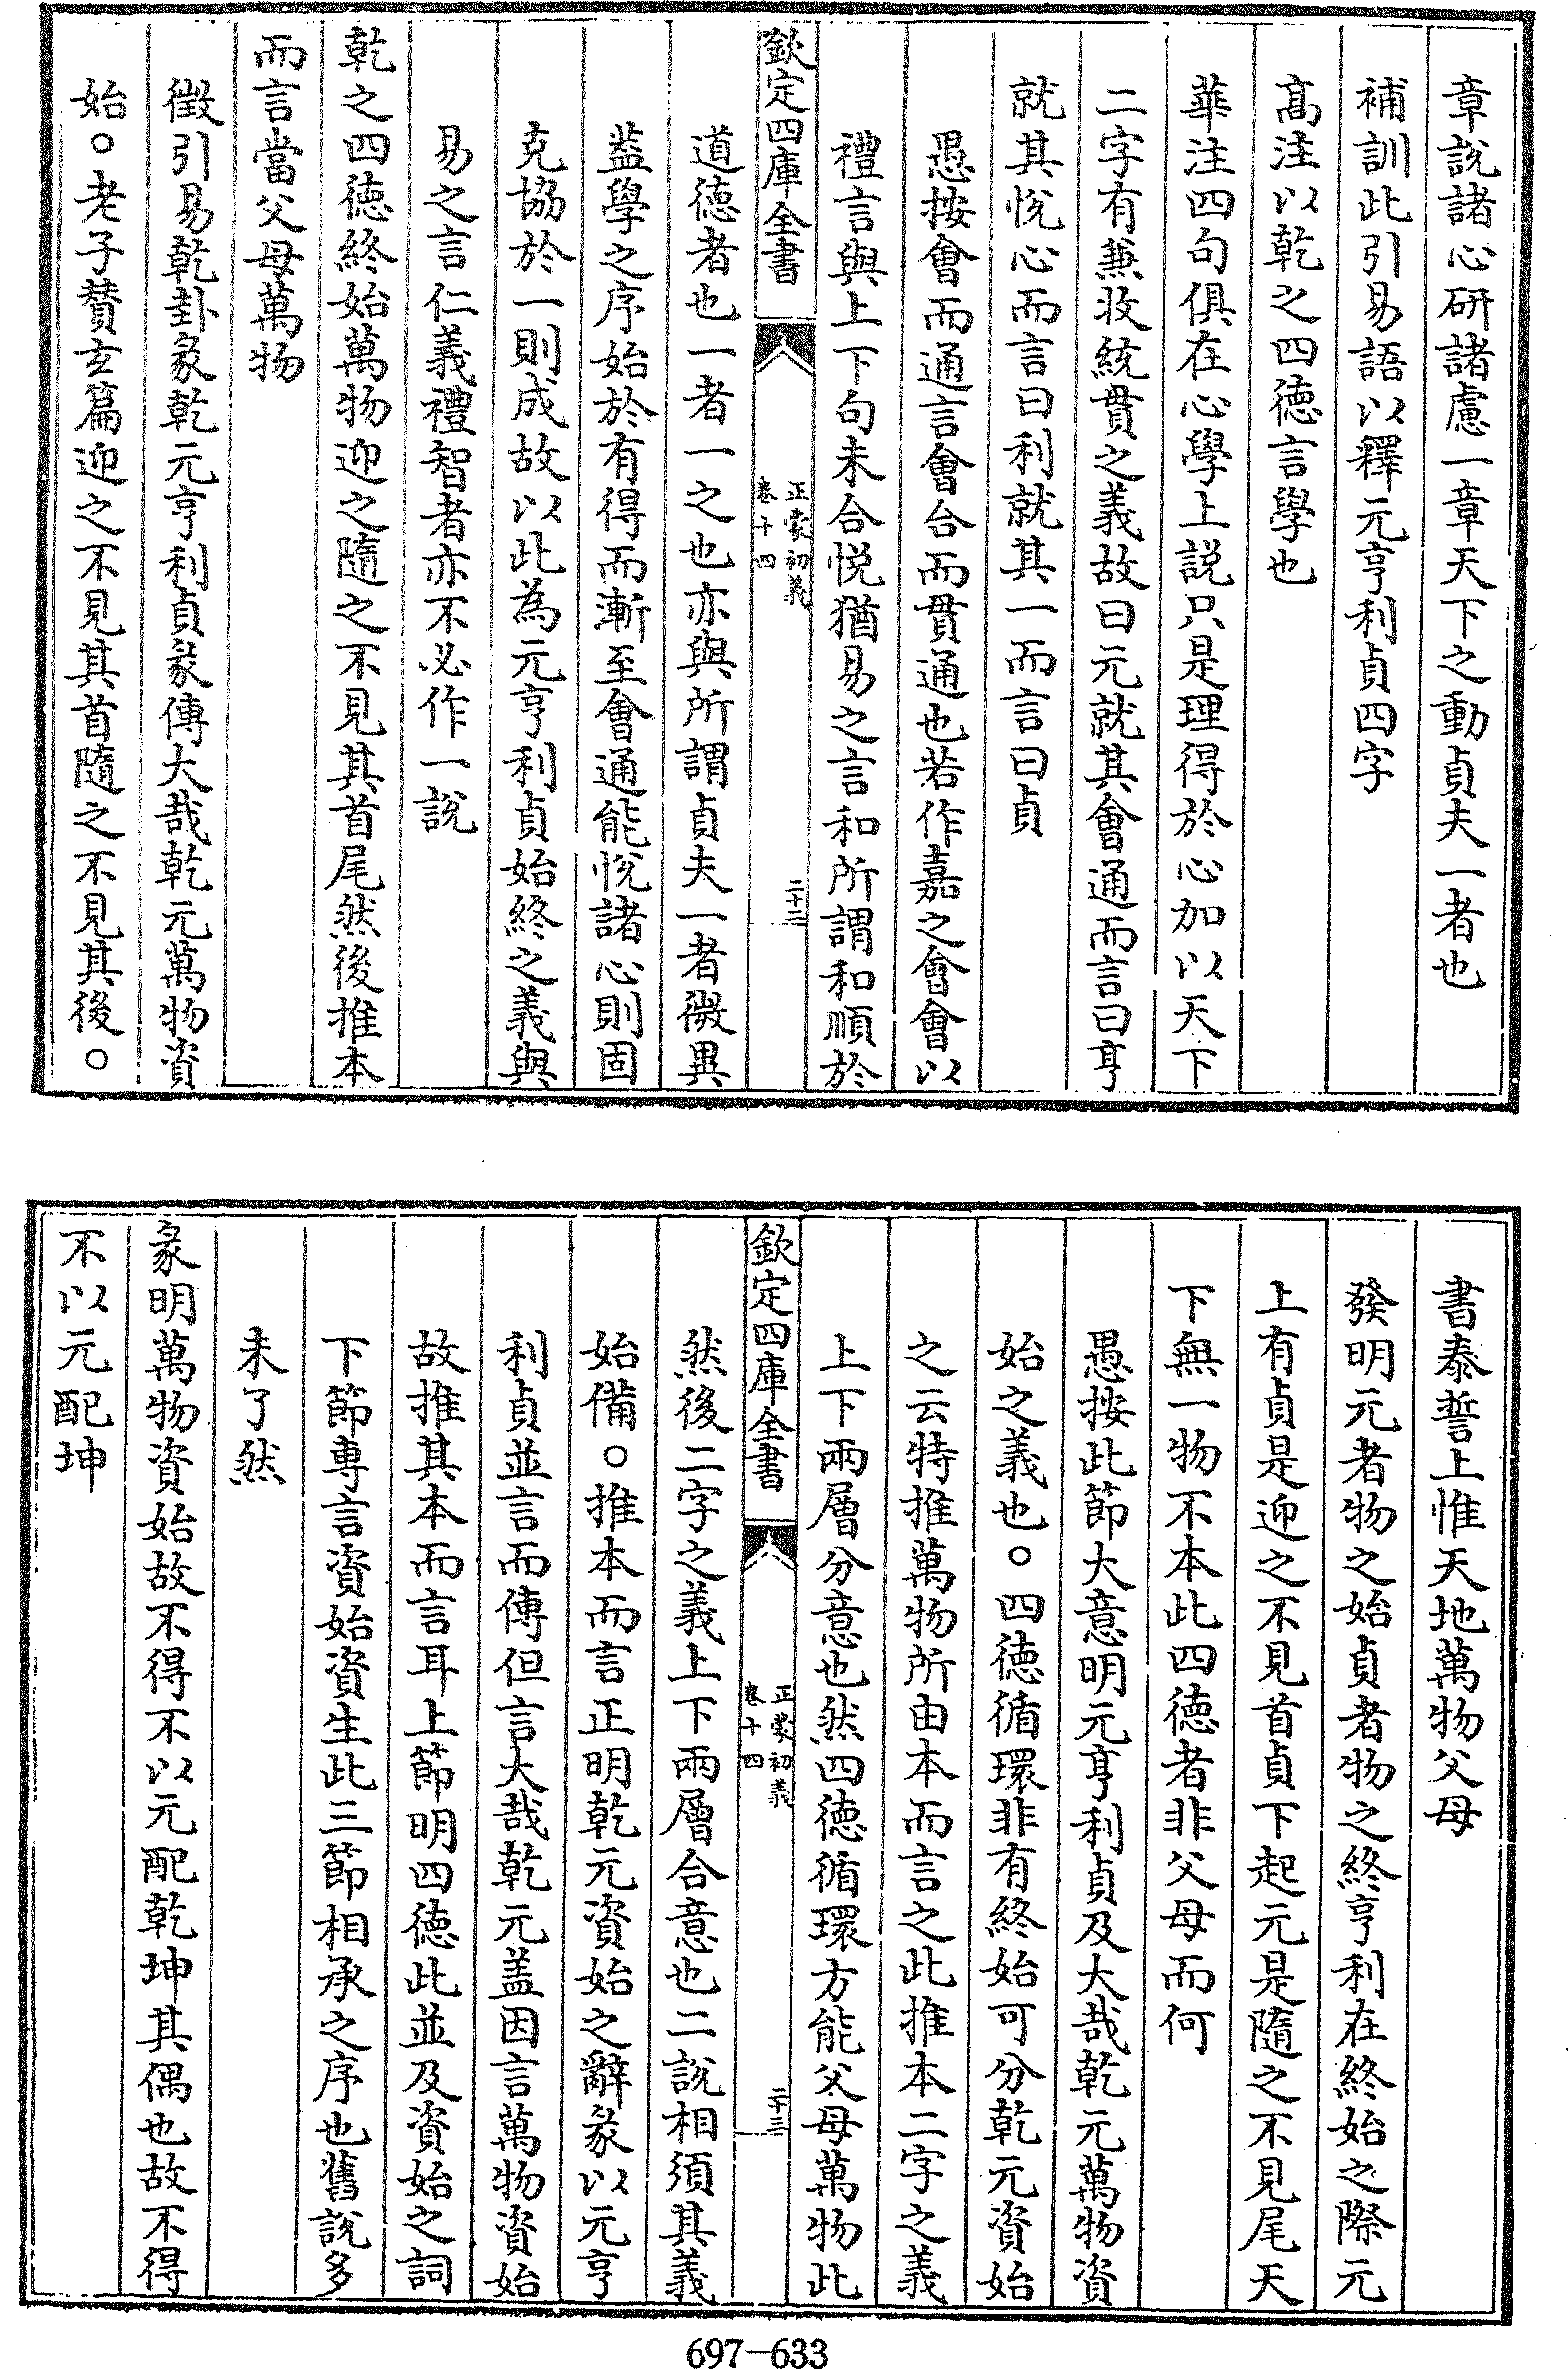 章說諸心研諸慮一章天下之動貞夫一者也
補訓此引易語以釋元亨利貞四字
髙注以乾之四徳言學也
華注四句俱在心學上説只是理得於心加以天下
二字有兼收統貫之義故曰元就其會通而言曰亨
就其悅心而言曰利就其一而言曰貞
愚按會而通言會合而貫通也若作嘉之會會以
禮言與上下句未合悅猶易之言和所謂和順於
欽定四庫全書
正蒙初義
卷十四
二十二
道徳者也一者一之也亦與所謂貞夫一者微異
葢學之序始於有得而漸至會通能悅諸心則固
克協於一則成故以此為元亨利貞始終之義與
易之言仁義禮智者亦不必作一說
乾之四徳終始萬物迎之隨之不見其首尾然後推本
而言當父母萬物
徵引易乾卦彖乾元亨利貞彖傳大哉乾元萬物資
始○老子賛玄篇迎之不見其首隨之不見其後○
書泰誓上惟天地萬物父母
發明元者物之始貞者物之終亨利在終始之際元
上有貞是迎之不見首貞下起元是隨之不見尾天
下無一物不本此四徳者非父母而何
愚按此節大意明元亨利貞及大哉乾元萬物資
始之義也○四徳循環非有終始可分乾元資始
之云特推萬物所由本而言之此推本二字之義
上下兩層分意也然四徳循環方能父母萬物此
欽定四庫全書
正蒙初義
卷十四
二十三
然後二字之義上下兩層合意也二說相須其義
始備○推本而言正明乾元資始之辭彖以元亨
利貞並言而傳但言大哉乾元盖因言萬物資始
故推其本而言耳上節明四徳此並及資始之詞
下節專言資始資生此三節相承之序也舊說多
未了然
彖明萬物資始故不得不以元配乾坤其偶也故不得
不以元配坤
697-633